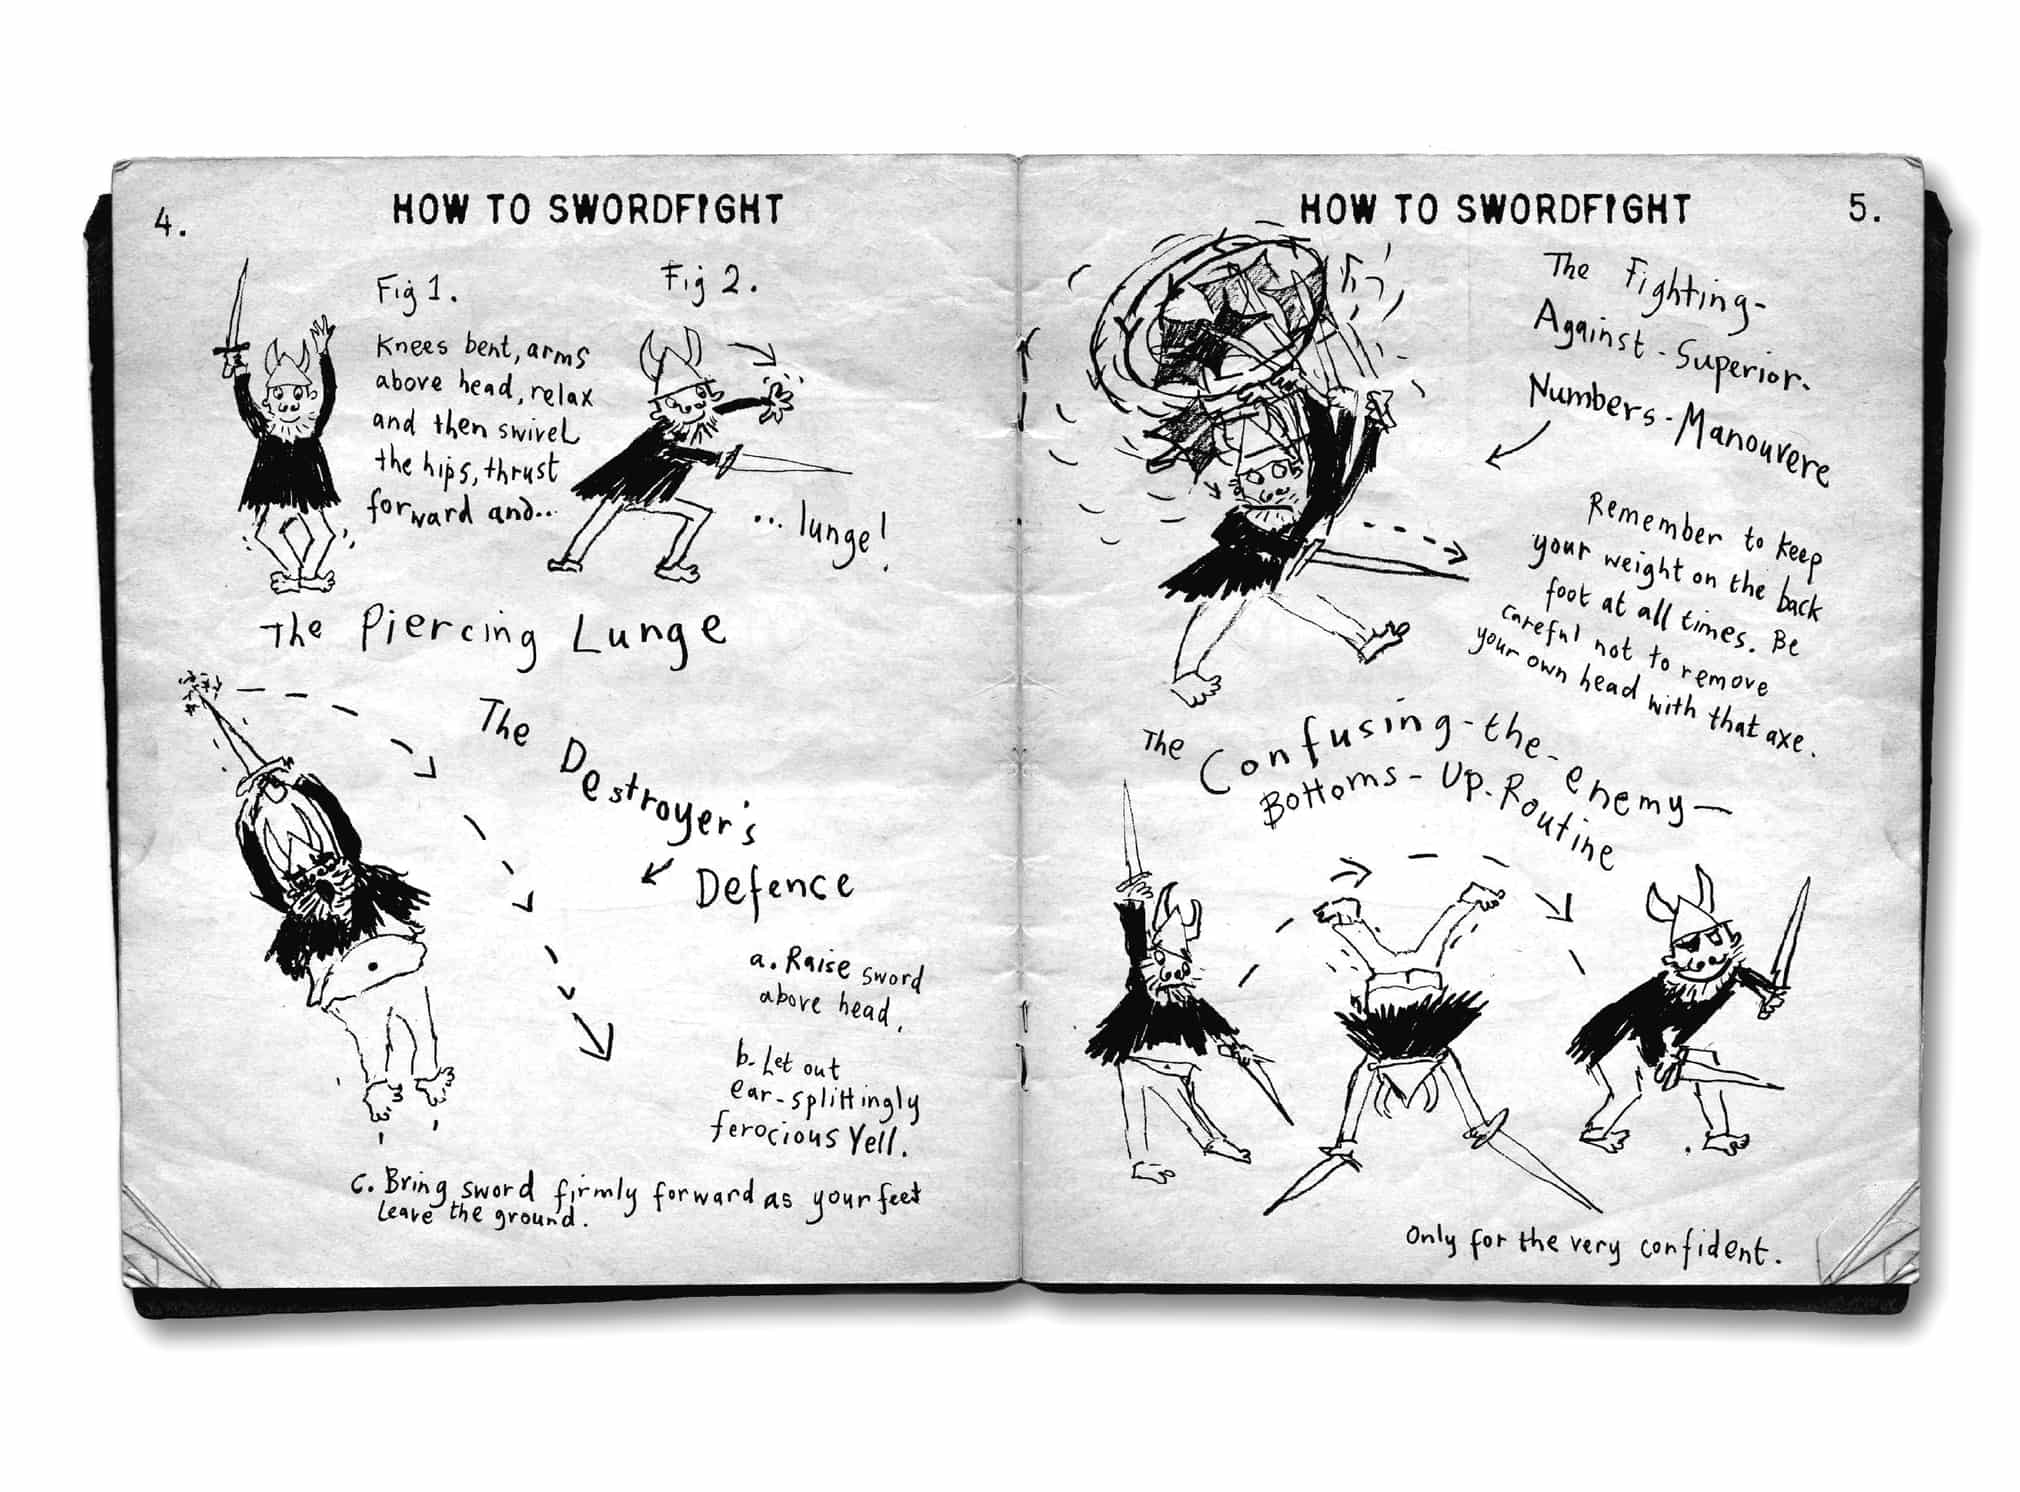 4.
HOW TO SWORDFIGHT
Fig 1.
Knees bent, arms
above head, relax
and then swivel
the hips, thrust
forward and...
Fig 2.
... lunge!
The Piercing Lunge
The Destroyer's
Defence
a. Raise sword
above head.
b. Let out
ear-splittingly
ferocious Yell.
c. Bring sword firmly forward as your feet
leave the ground.
HOW TO SWORDFIGHT
5.
The Fighting-
Against-Superior-
Numbers-Manouvere
Remember to keep
your weight on the back
foot at all times. Be
careful not to remove
your own head with that axe.
The Confusing-the-enemy-
Bottoms-Up-Routine
Only for the very confident.